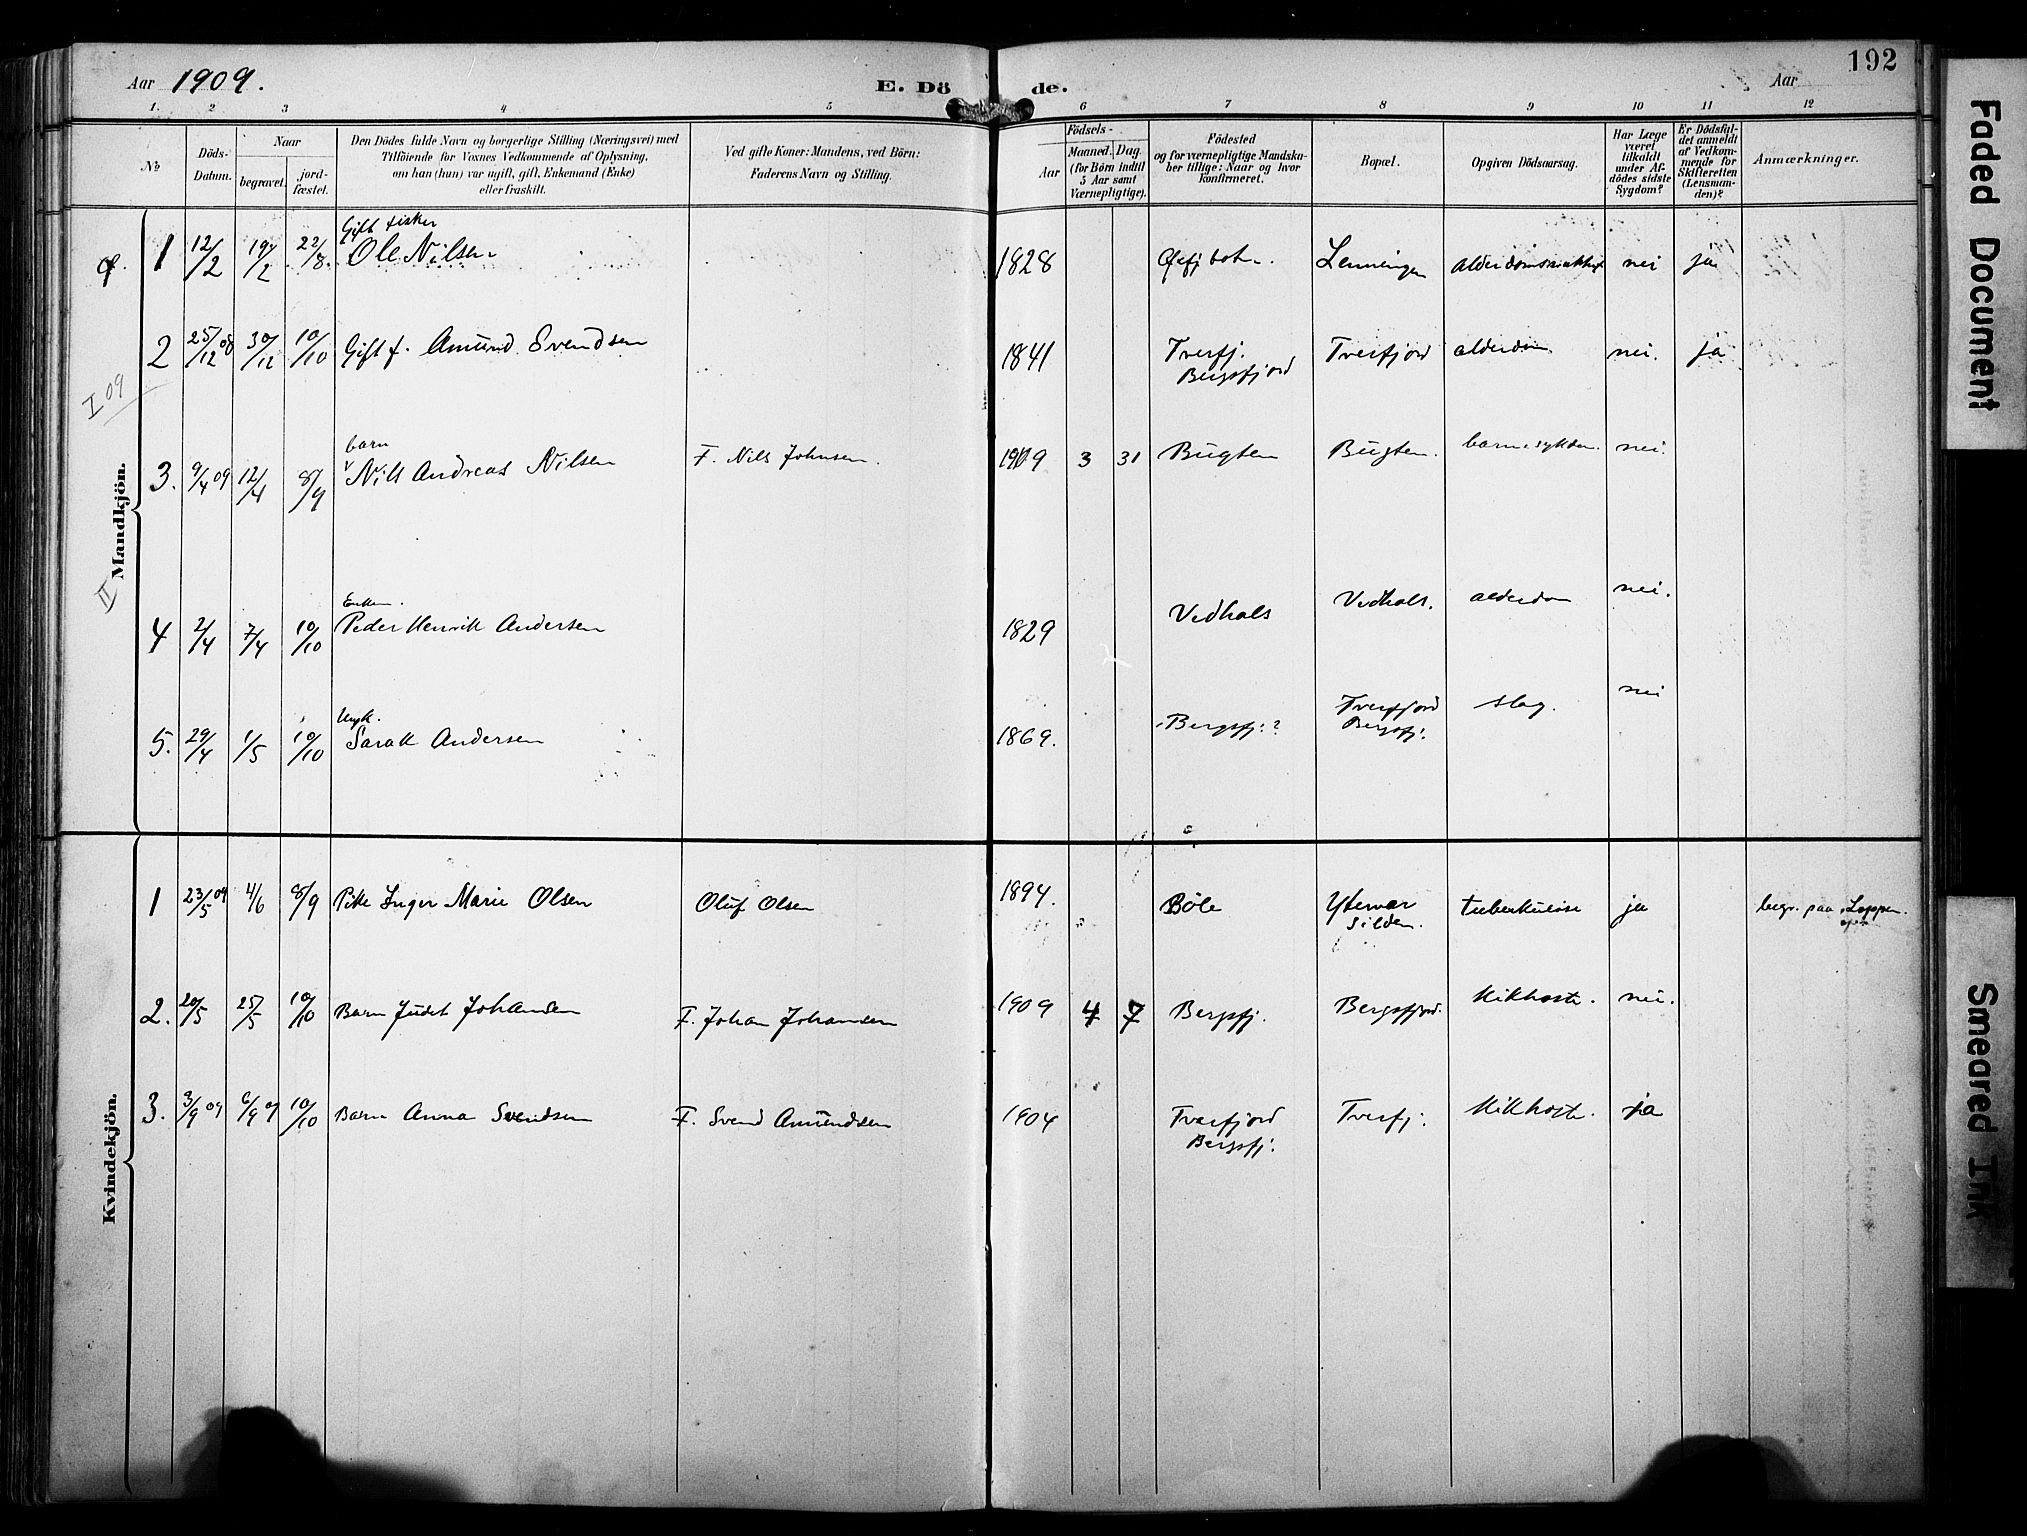 192
Aar 1909. E. Dö de. Aar
1. 2 3 4 5 6 7 8 9 10 11 12
No
Döds-Datum.
Naar
begravet. jordfæstet.
Den Dödes fulde Navn og borgerlige Stilling (Næringsvei) med
Tilföiende for Voxnes Vedkommende af Oplysning,
om han (hun) var ugift, gift, Enkemand (Enke)
eller fraskilt.
Ved gifte Koner: Mandens, ved Börn:
Faderens Navn og Stilling.
Födsels-
Aar
Maaned. Dag.
(for Börn indtil
5 Aar samt
Værnepligtige).
Födested
og for værnepligtige Mandska-
ber tillige: Naar og hvor
konfirmeret.
Bopæl.
Opgiven Dödsaarsag.
Har Læge
været
tilkaldt
under Af-
dödes sidste
Sygdom?
Er Dödsfal-
det anmeldt
af Vedkom-
mende for
Skifteretten
(Lensman-
den)?
Anmærkninger.
Mandkjön.
Gift fisker
1 12/2 19/2 22/8 Ole Nilsen 1828 alderdomssvakhet nei ja
I 09
2 25/12 08 30/12 10/10 Gift f. Amund Svendsen 1841 Tverfj. Bergsfjord Tverfjord alderdom nei. ja
barn
3. 9/4 09 12/4 8/9 Nils Andreas Nilsen F. Nils Johnsen. 1909 3 31 Bugten Bugten. barnesykdom nei.
II
Enkem.
4 2/4 7/4 10/10 Peder Henrik Andersen 1829 Vedhals Vedhals. alderdom nei.
Ungk.
5. 29/4 1/5 10/10 Sarak Andersen 1869. Bergsfj:? Tverfjord Bergsfj: slag. nei
Kvindekjön.
1 23/5 09 4/6 8/9 Pike Inger Marie Olsen Oluf Olsen 1894. Böle Ytevær Silden. tuberkulose ja begr. paa Loppen.
2. 20/5 25/5 10/10 Barn Judet Johansen F. Johan Johansen 1909 4 7 Bergsfj. Bergsfjord. Kikhoste. nei.
3. 3/9 09 6/9 09 10/10 Barn Anna Svendsen F. Svend Amundsen 1904 Tverfjord Bergsfj: Tverfj: Kikhoste. ja
Faded Document
Smeared Ink